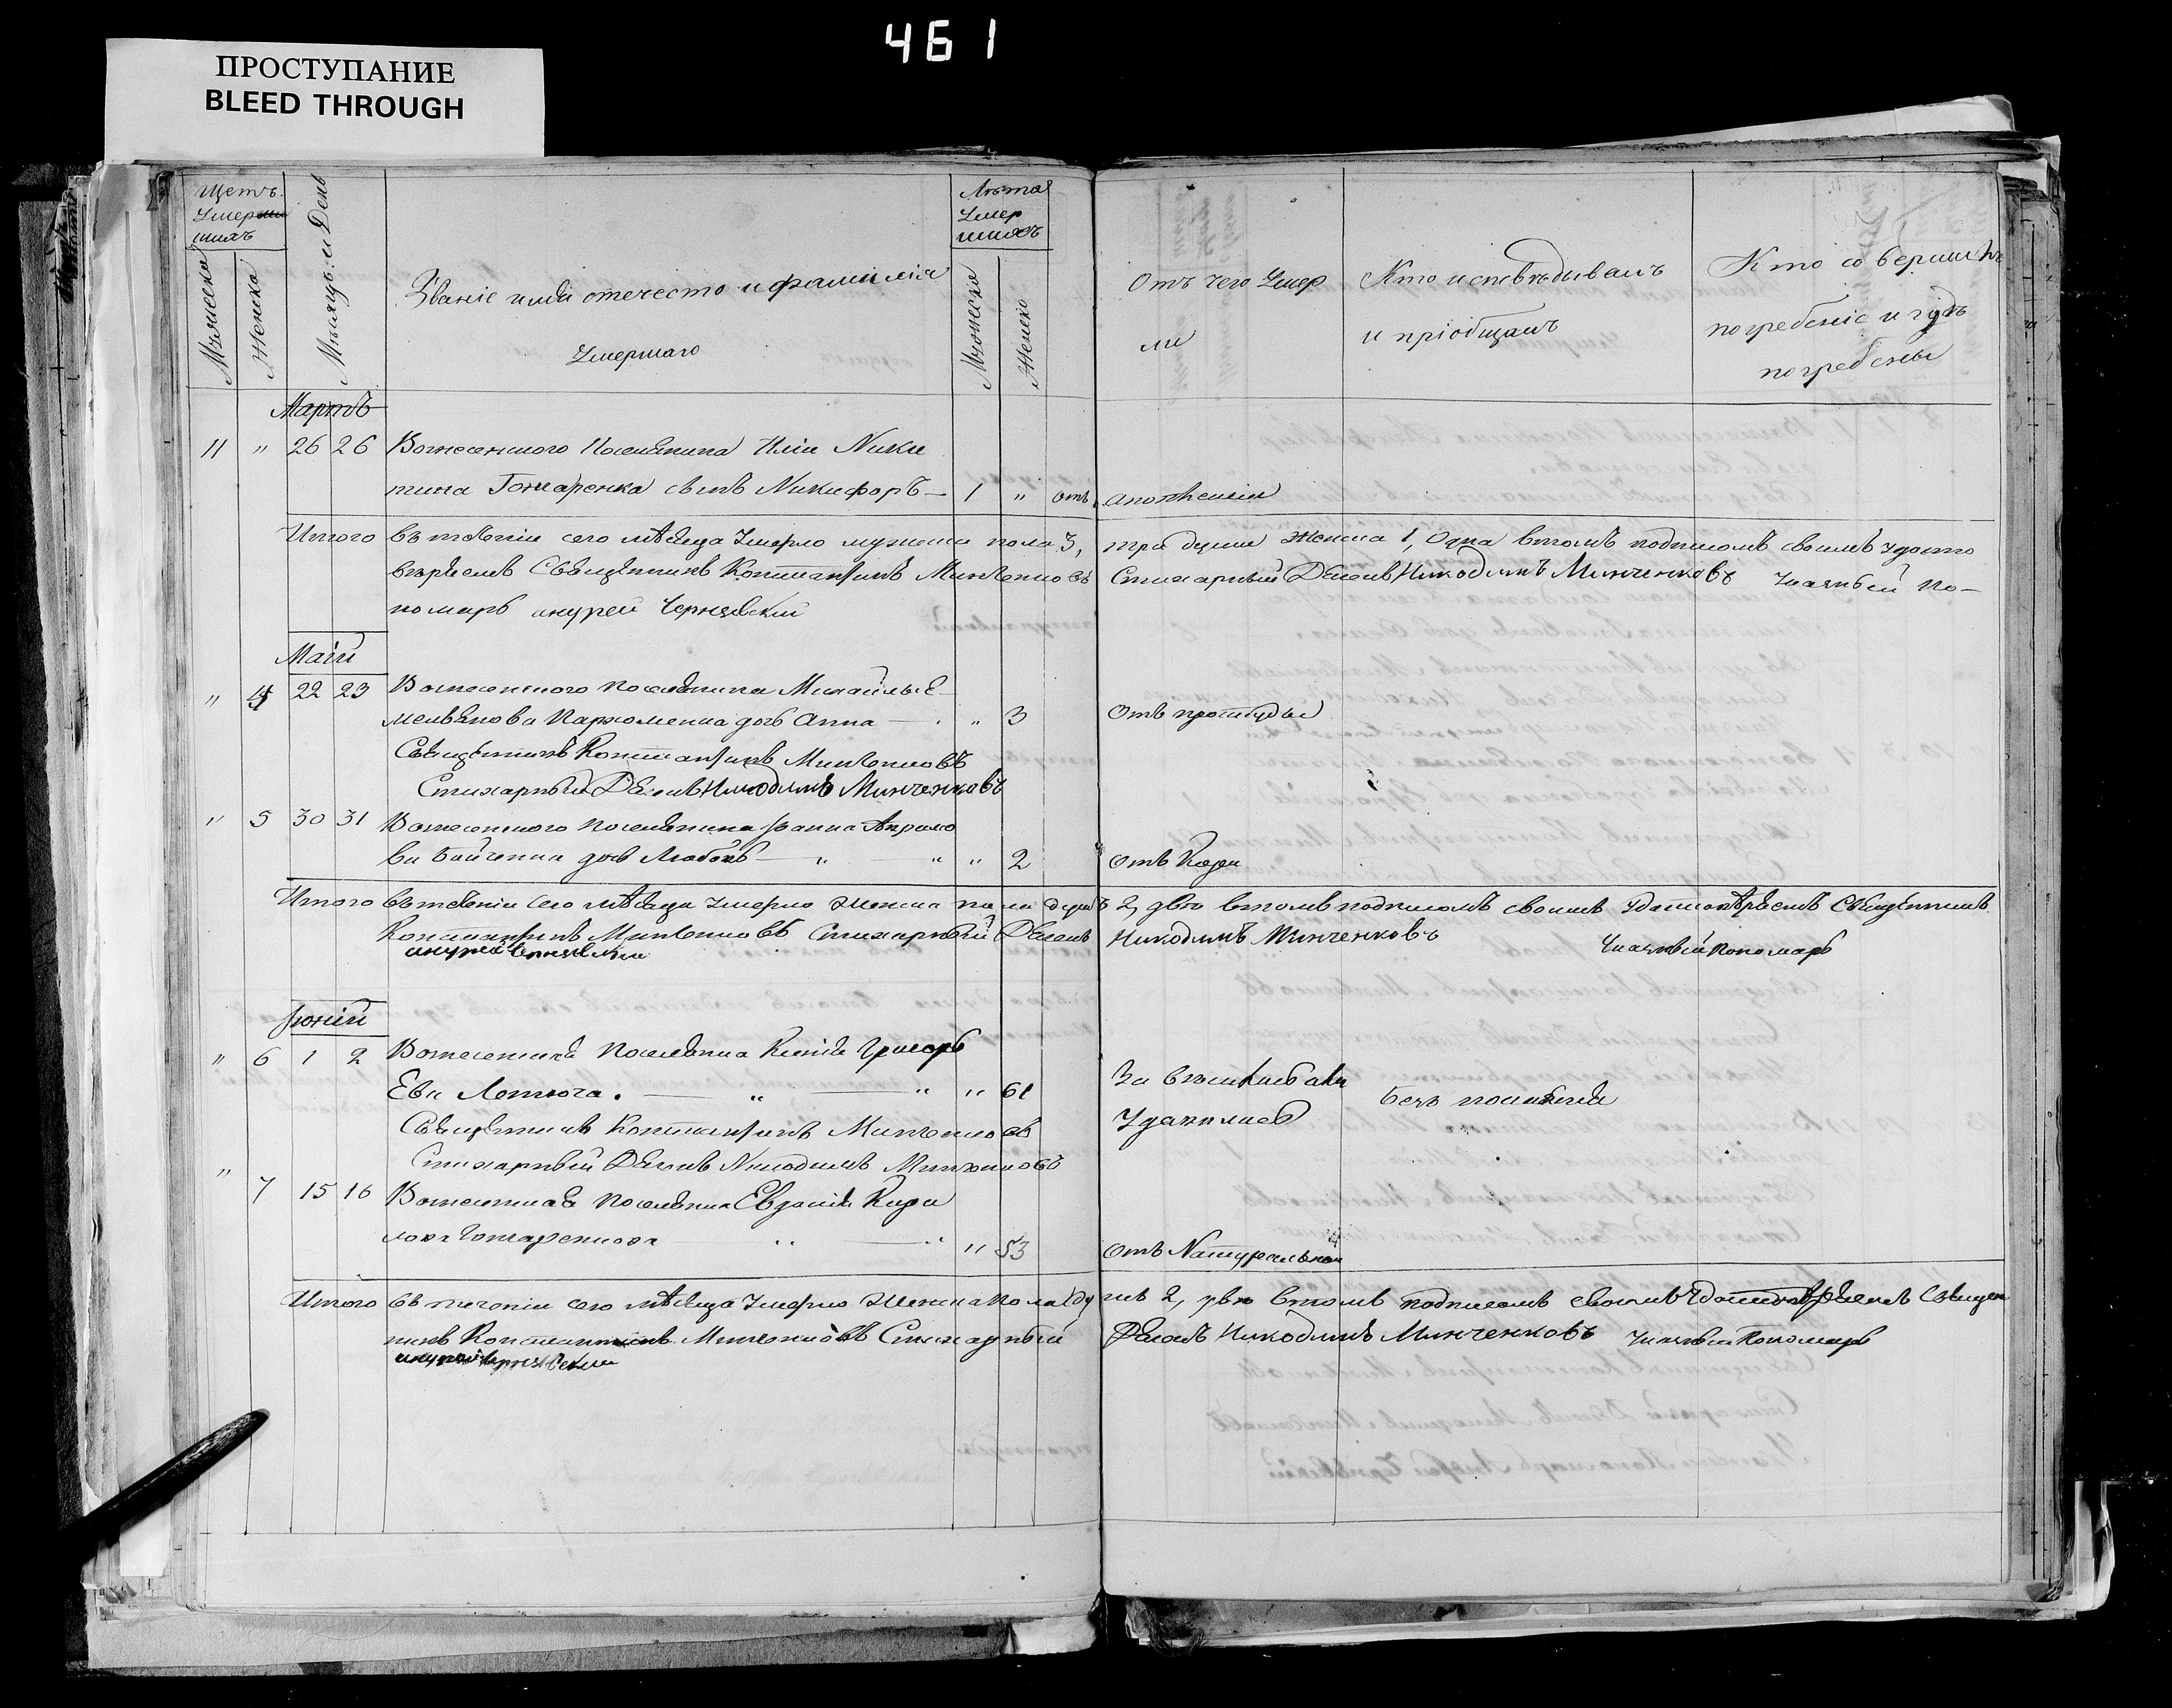 461
ПРОСТУПАНИЕ
BLEED THROUGH
Щетъ
Умер
шихъ
Мужеска
Женска
Мѣсяцъ и День
Званіе имя отечество и фамилія
Умершаго
Лѣта
Умер
шихъ
Мужеска
Женска
Отъ чего Умер
ли
Кто исповѣдывалъ
и пріобщалъ
Кто совершилъ
погребеніе и гдѣ
погребены
Мартъ
11 " 26 26 Вознесенского Поселянина Иліи Ники
тина Гончаренка сынъ Никифоръ — 1 " отъ
Итого въ теченіи сего мѣсяца Умерло мужеска пола 3, три души Женска 1, Одна втомъ подписомъ своимъ удосто
вѣряемъ Священникъ Константинъ Минченковъ Стихарный Дьячокъ Никодимъ Минченковъ По-
номарь Андрей
Маій
" 4 22 23 Вознесенского поселянина Михайлы Е
мельянова Пархоменка дочь Анна — " 3 Отъ простуды
Священникъ Константинъ Минченковъ
Стихарный Дьячокъ Никодимъ Минченковъ
" 5 30 31 Вознесенского поселянина
дочь Любовь — " " " 2 отъ Кори
Итого въ теченіи сего мѣсяца умерло Женска пола душъ 2, двѣ втомъ подписомъ своимъ удостовѣряемъ Священникъ
Константинъ Минченковъ Стихарный Дьячокъ Никодимъ Минченковъ Пономарь
Андрей
Іюній
" 6 1 2 Вознесенска Поселянка Ксенія Григорь
Ева . — " — " " 61
Удавилась
Безъ покаянія
Священникъ Константинъ Минченковъ
Стихарный Дьячокъ Никодимъ Минченковъ
" 7 15 16 Вознесенская Поселянка Евдокія Кири
лова Гончаренкова — " — " " 53 отъ Натуральной
Итого въ теченіи сего мѣсяца Умерло Женска пола душъ 2, двѣ втомъ подписомъ своимъ Удостовѣряемъ Священ
никъ Константинъ Минченковъ Стихарный Дьячокъ Никодимъ Минченковъ Пономарь
Андрей